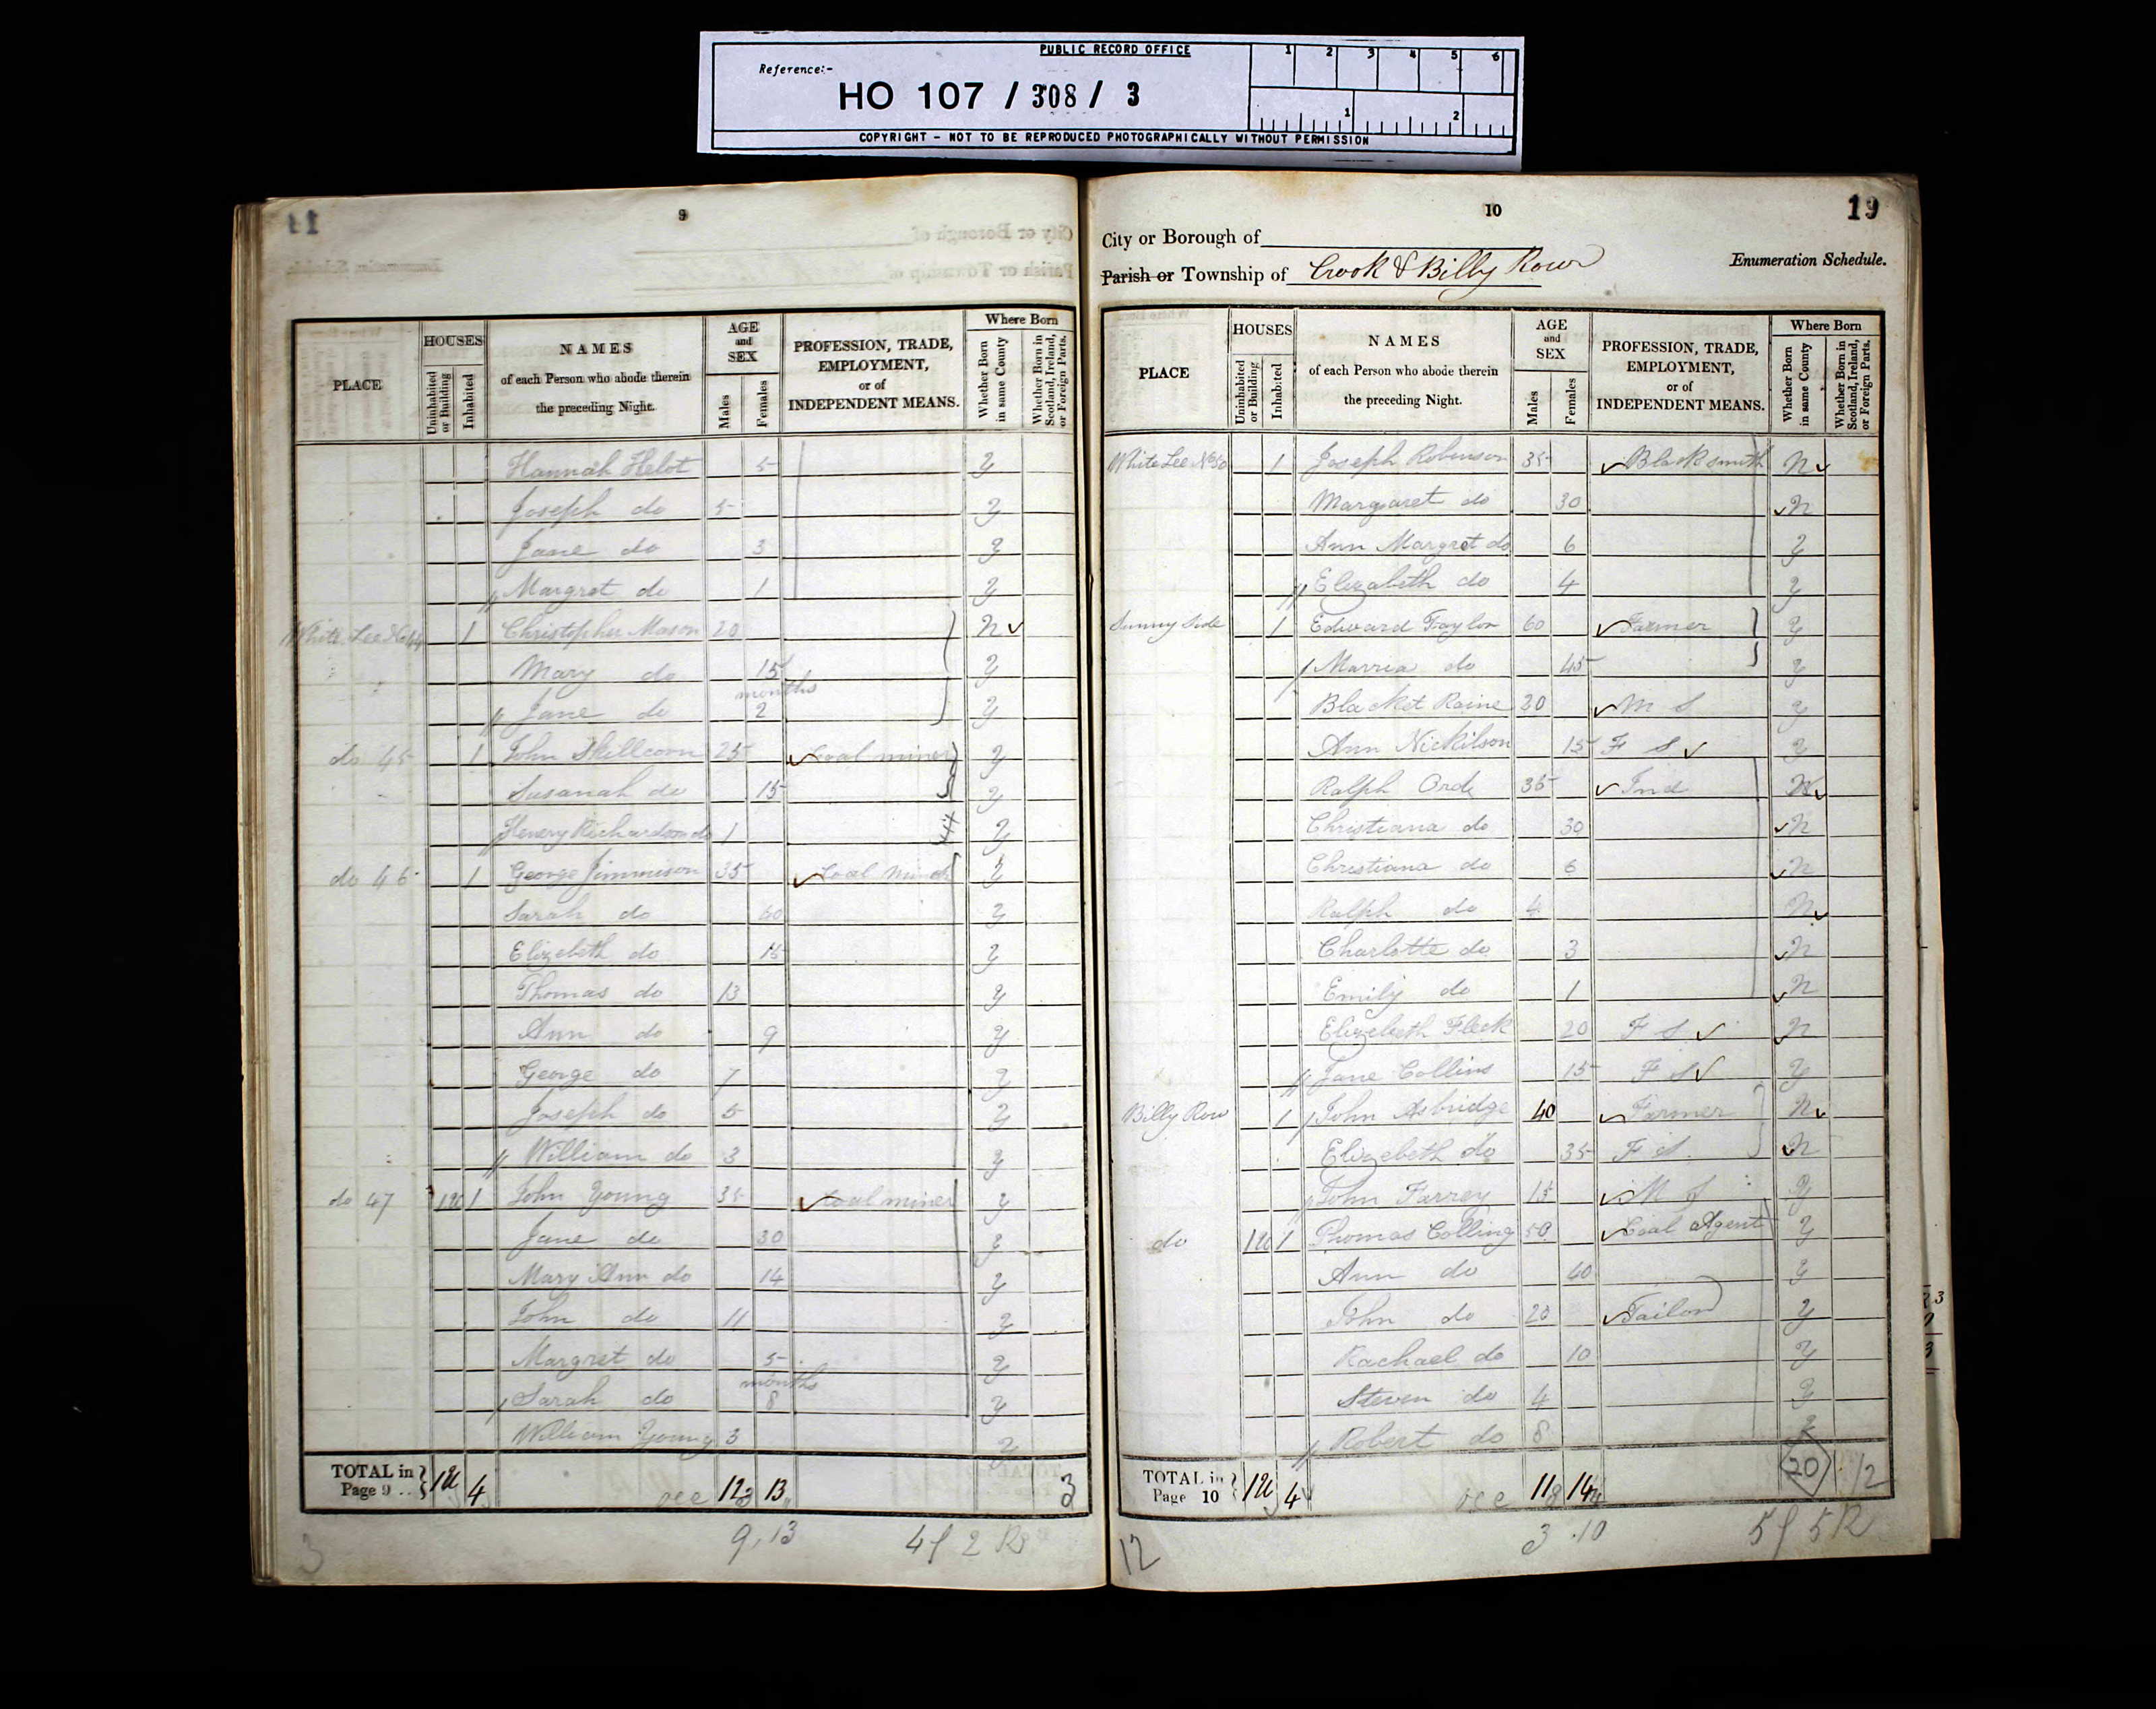 PUBLIC RECORD OFFICE
Reference:-
HO 107 / 308 / 3
1 2 3 4 5 6
1 2
COPYRIGHT - NOT TO BE REPRODUCED PHOTOGRAPHICALLY WITHOUT PERMISSION
9
PLACE
HOUSES
Uninhabited or Building
Inhabited
NAMES
of each Person who abode therein
the preceding Night.
AGE
and
SEX
Males
Females
PROFESSION, TRADE,
EMPLOYMENT,
or of
INDEPENDENT MEANS.
Where Born
Whether Born in same County
Whether Born in Scotland, Ireland, or Foreign Parts.
Hannah Helot 5 Y
Joseph do 5 Y
Jane do 3 Y
Margret do 1 Y
White Lee No 44 1 Christopher Mason 20 N
Mary do 15 Y
months
Jane do 2 Y
do 45 1 John Skillcorn 25 Coal miner Y
Susanah do 15 Y
Henery Richardson do 1 Y
do 46 1 George Jimmison 35 Coal Miner Y
Sarah do Y
Elizebeth do 15 Y
Thomas do 13 Y
Ann do 9 Y
George do 7 Y
Joseph do 5 Y
William do 3 Y
do 47 1U 1 John Young 35 Coal miner Y
Jane do 30 Y
Mary Ann do 14 Y
John do 11 Y
Margret do 5 Y
months
Sarah do 8 Y
William Young 3 Y
TOTAL in
Page 9 .. 1U 4 12 13 3
9, 13 4f 2 R
3
10
19
City or Borough of
Parish or Township of Crook & Billy Row
Enumeration Schedule.
PLACE
HOUSES
Uninhabited or Building
Inhabited
NAMES
of each Person who abode therein
the preceding Night.
AGE
and
SEX
Males
Females
PROFESSION, TRADE,
EMPLOYMENT,
or of
INDEPENDENT MEANS.
Where Born
Whether Born in same County
Whether Born in Scotland, Ireland, or Foreign Parts.
White Lee No 50 1 Joseph Robinson 35 Blacksmith N
Margaret do 30 N
Ann Margret do 6 Y
Elizabeth do 4 Y
Sunny Side 1 Edward Taylor 60 Farmer Y
Marria do 45 Y
Blacket Raine 20 M S Y
Ann Nickilson 15 F S Y
Ralph Orde 35 Ind N
Christiana do 30 N
Christiana do 6 N
Ralph do 4 N
Charlotte do 3 N
Emily do 1 N
Elizebeth Fleck 20 F S N
Jane Collins 15 F S Y
Billy Row 1 John Asbridge 40 Farmer N
Elizebeth do 35 F S. N
John Farrey 15 M S Y
do 1U 1 Thomas Colling 50 Coal Agent Y
Ann do 40 Y
John do 20 Tailor Y
Rachael do 10 Y
Steven do 4 Y
Robert do 8 Y
TOTAL in
Page 10 1U 4 11 14 20 12
3 .10 5f 5R
12